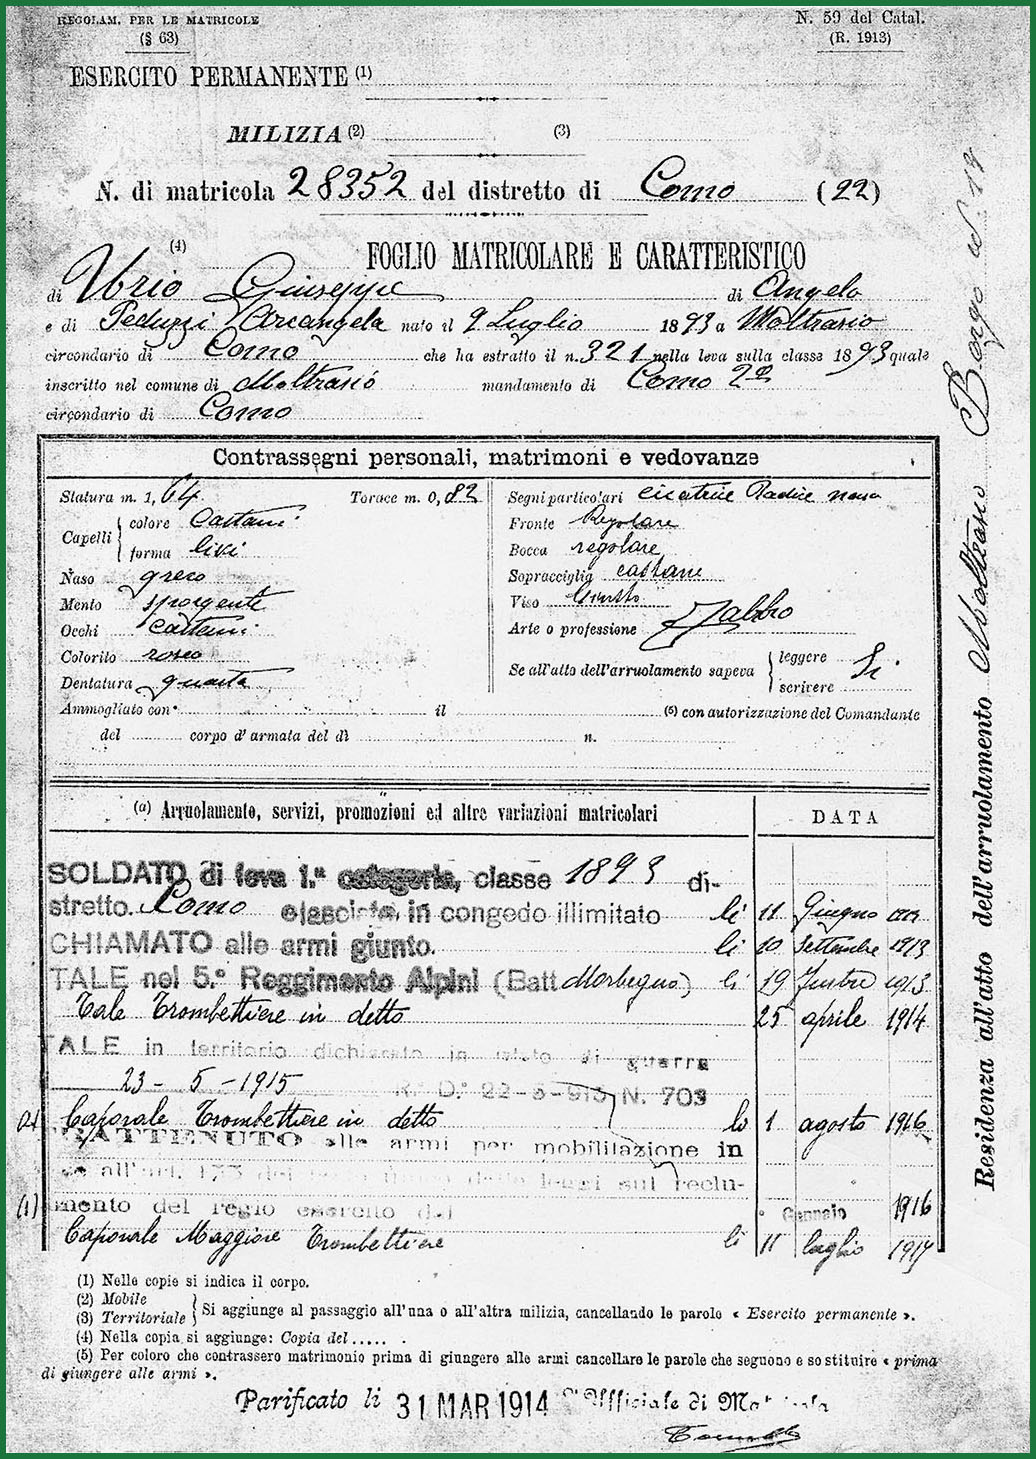 REGOLAM. PER LE MATRICOLE
(§ 63)
N. 59 del Catal.
(R. 1913)
ESERCITO PERMANENTE (1)
MILIZIA (2) (3)
N. di matricola 28352 del distretto di Como (22)
(4) FOGLIO MATRICOLARE E CARATTERISTICO
di Urio Giuseppe di Angelo
e di Peduzzi Arcangela nato il 9 Luglio 1893 a Moltrasio
circondario di Como che ha estratto il n. 321 nella leva sulla classe 1893 quale
inscritto nel comune di Moltrasio mandamento di Como 2º
circondario di Como
Contrassegni personali, matrimoni e vedovanze
Statura m. 1, 64 Torace m. 0, 82
Capelli colore Castani
forma lisci
Naso greco
Mento sporgente
Occhi Castani
Colorito roseo
Dentatura guasta
Segni particolari cicatrice Radice naso
Fronte Regolare
Bocca regolare
Sopracciglia castane
Viso Giusto
Arte o professione Fabbro
Se all'atto dell'arruolamento sapeva leggere scrivere Si
Ammogliato con il (5) con autorizzazione del Comandante
del corpo d'armata del dì n.
(a) Arruolamento, servizi, promozioni ed altre variazioni matricolari
DATA
SOLDATO di leva 1.ª categoria, classe 1893 di-
stretto Como e lasciato in congedo illimitato li 11 Giugno
CHIAMATO alle armi e giunto. li 10 Settembre 1913
TALE nel 5.º Reggimento Alpini (Batt Morbegno) li 19 1913
Tale Trombettiere in detto 25 aprile 1914
TALE in territorio dichiarato in istato di guerra
23 - 5 - 1915 R. D. N. 703
(2) Caporale Trombettiere in detto lo 1 agosto 1916
TRATTENUTO alle armi per mobilitazione in
all'art. 133 delle leggi sul reclu-
(1) mento del regio esercito dal Gennaio 1916
Caporale Maggiore Trombettiere li 11 luglio 1917
Residenza all'atto dell'arruolamento Moltrasio Borgo N 17
(1) Nelle copie si indica il corpo.
(2) Mobile
(3) Territoriale
Si aggiunge al passaggio all'una o all'altra milizia, cancellando le parole « Esercito permanente ».
(4) Nella copia si aggiunge: Copia del .....
(5) Per coloro che contrassero matrimonio prima di giungere alle armi cancellare le parole che seguono e sostituire « prima
di giungere alle armi ».
Parificato li 31 MAR 1914 L'Ufficiale di Matricola